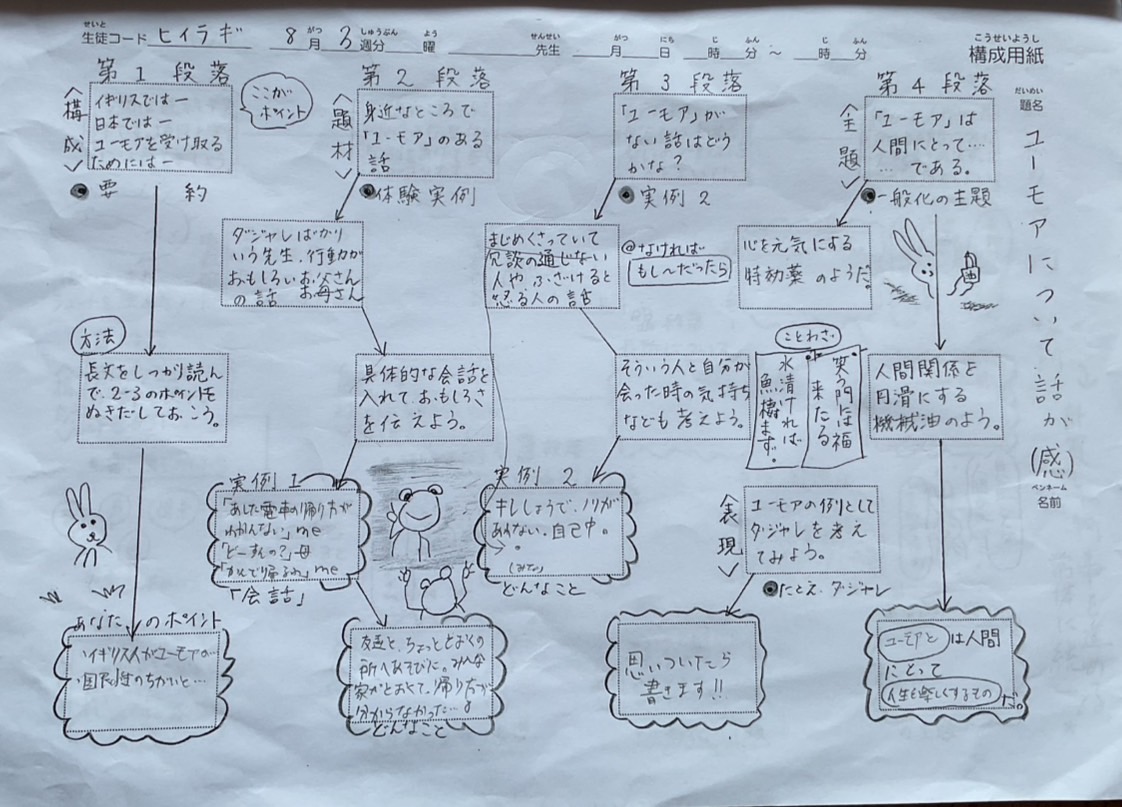 せいと がつ しゅうぶん よう せんせい がつ にち じ ふん じ ふん こうせいようし
生徒コード ヒイラギ 8月 3週分 曜 先生 月 日 時 分 ~ 時 分 構成用紙
だいめい
題名
ユーモアについて・話が(感)
ペンネーム
名前
第1段落
<構成>
イギリスではー
日本ではー
ユーモアを受け取る
ためにはー
ここが
ポイント
●要約
方法
長文をしっかり読ん
で、2-3のポイントを
ぬきだしておこう。
あなたのポイント
イギリス人がユーモアの
国民性のちがいと…
第2段落
<題材>
身近なところで
「ユーモア」のある
話
●体験実例
ダジャレばかり
いう先生、行動が
おもしろいお父さん
お母さん
の話
具体的な会話を
入れて、おもしろさ
を伝えよう。
実例1
「あした電車の帰り方が
わかんない」me
「どーすんの?」母
me
「会話」
友達と、ちょっととおくの
所へあそびに。みんな
家がとおくて、帰り方が
分からなかった…。
どんなこと
第3段落
「ユーモア」が
ない話はどう
かな?
●実例2
まじめくさっていて
冗談の通じない
人や、ふざけると
怒る人の話
@なければ
もし〜だったら
そういう人と自分が
会った時の気持ち
なども考えよう。
実例2
キレしょうで、ノリが
あわない、自己中。
どんなこと
<表現>
ユーモアの例として
ダジャレを考え
てみよう。
●たとえ・ダジャレ
思いついてたら
書きます!!
第4段落
<主題>
「ユーモア」は
人間にとって…
…である。
●一般化の主題
心を元気にする
特効薬のようだ。
ことわざ
笑う門には福
来たる
水清ければ
魚棲まず。
人間関係を
円滑にする
機械油のよう。
ユーモアとは人間
にとって
人生を楽しくするものだ。